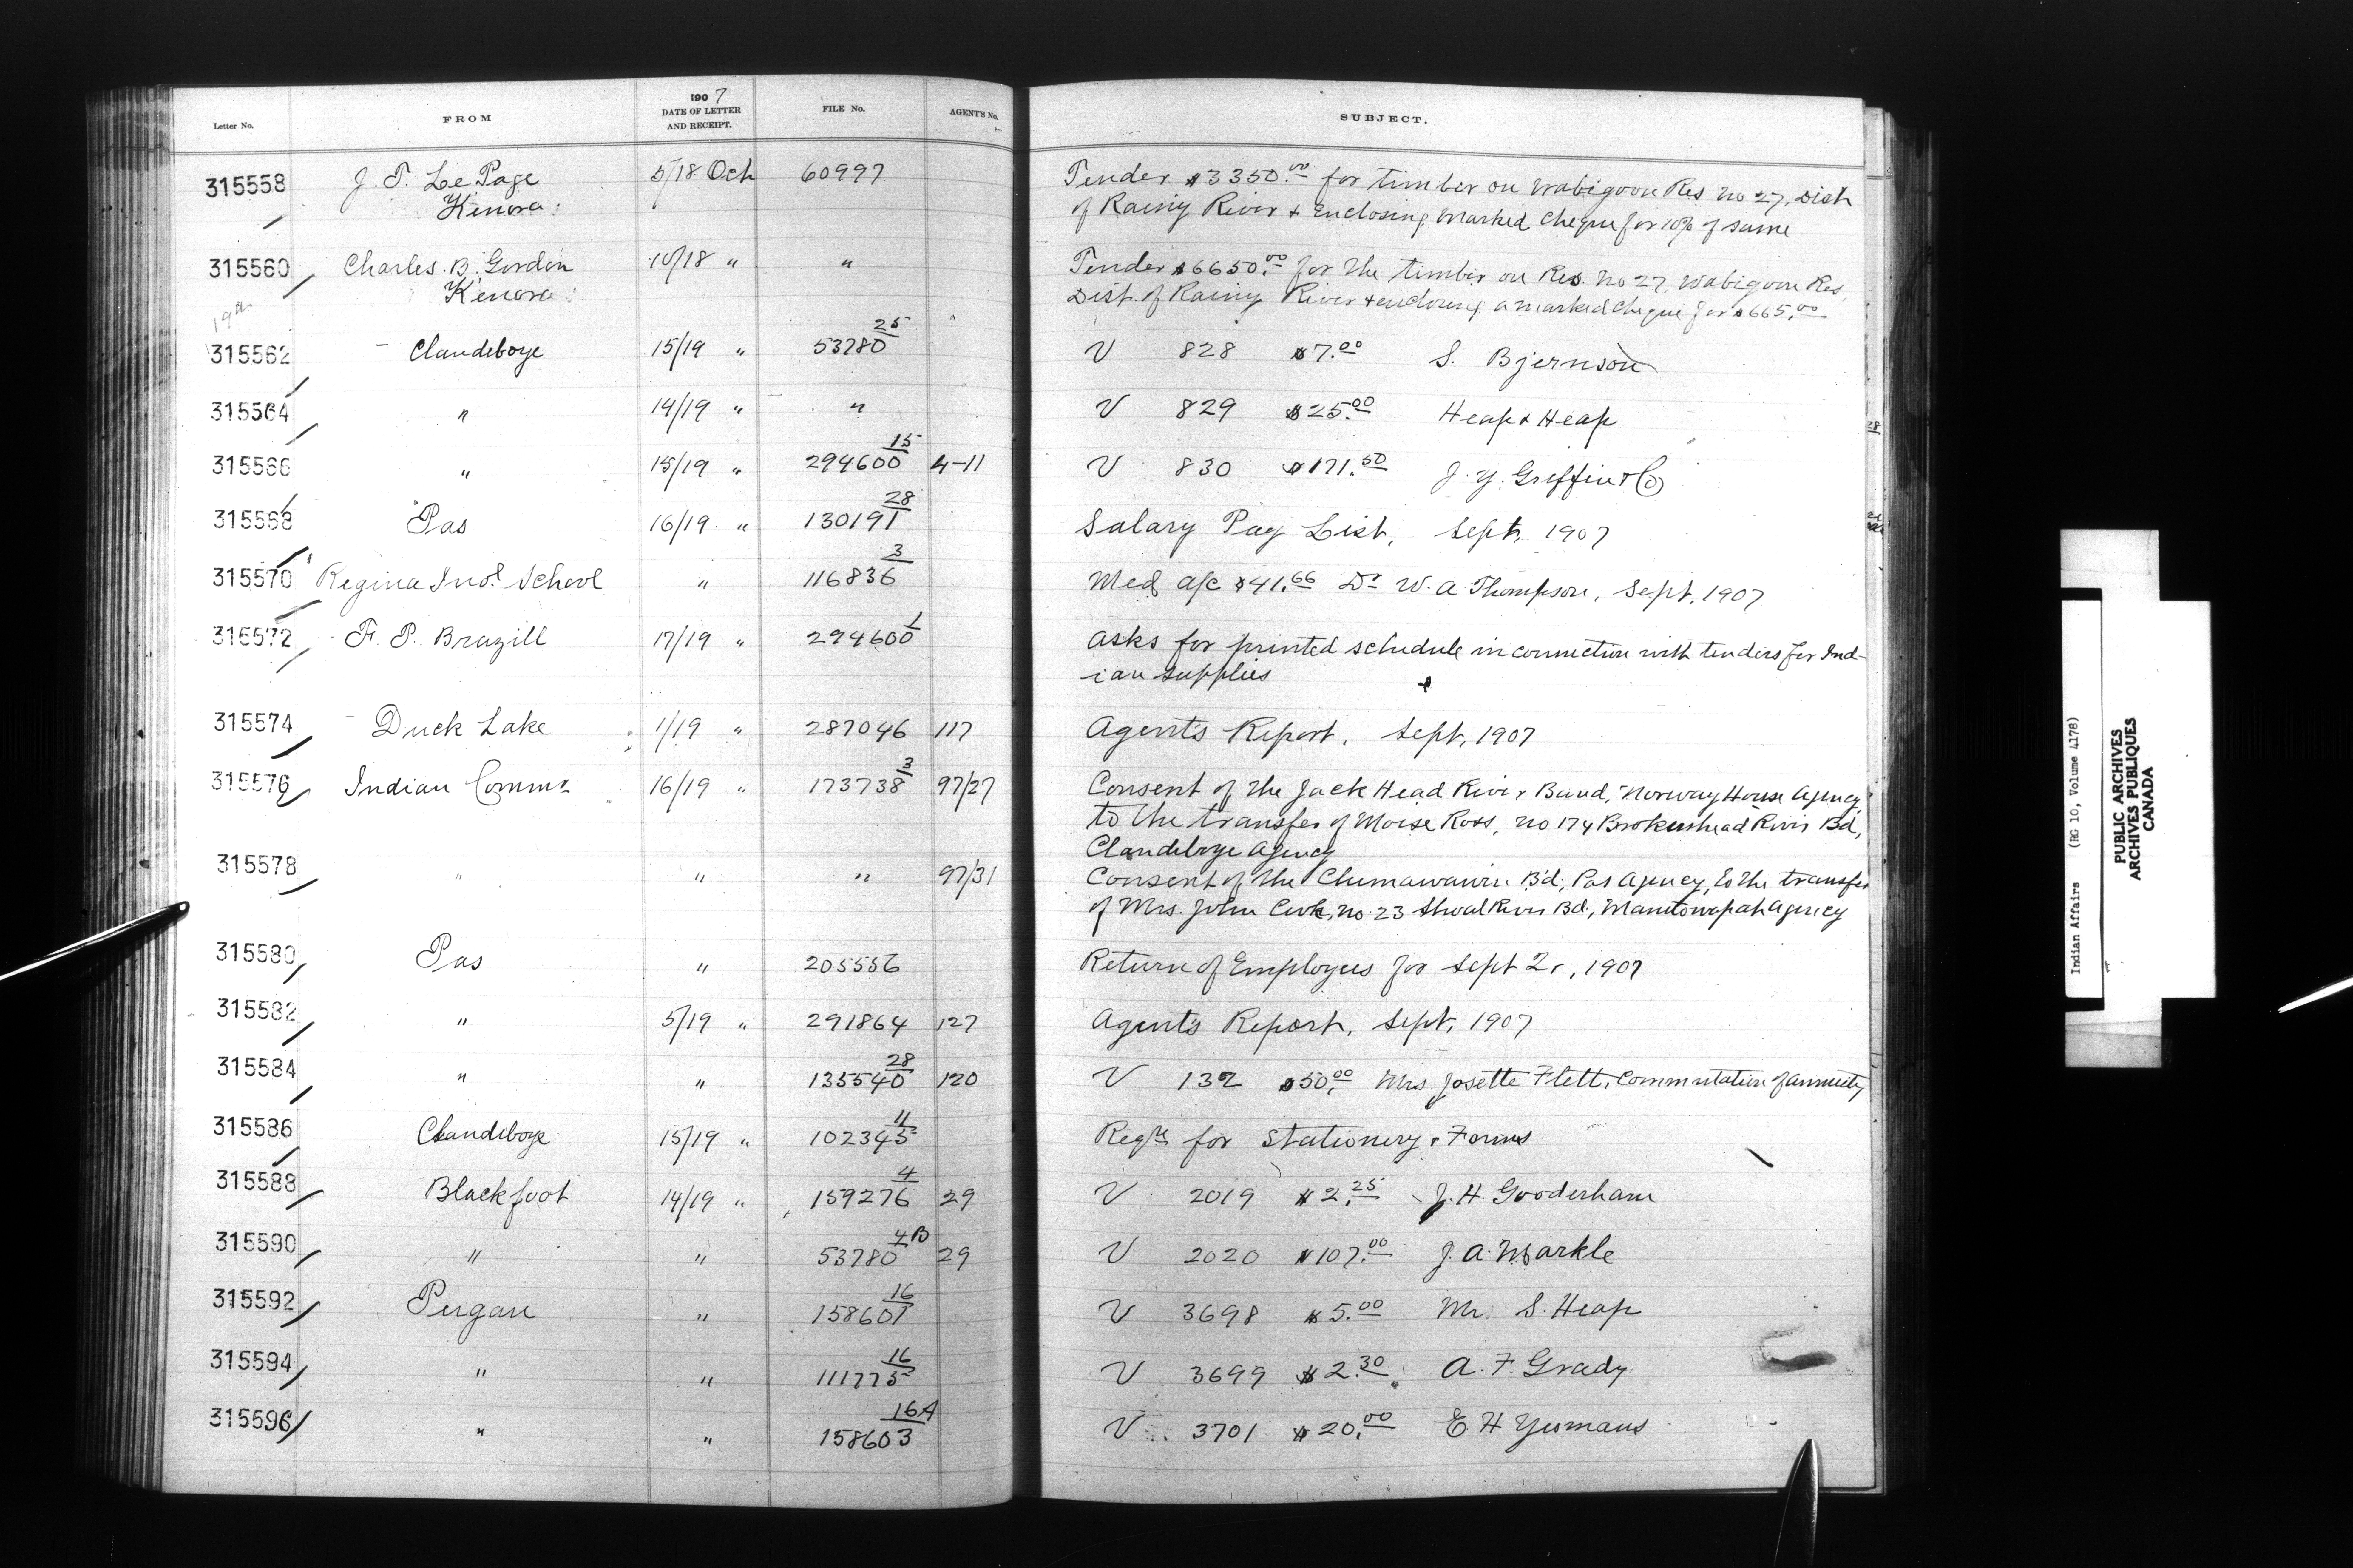 Letter No. FROM 1907 DATE OF LETTER AND RECEIPT. FILE No. AGENT'S No. SUBJECT.
315558 J. P. LePage 5/18 Oct 60997 Tender $3350.00 for timber on Wabigoon Res no 27, Dist
Kenora of Rainy River & Enclosing Marked Cheque for 10% of same
315560 Charles B. Gordon 10/18 " " Tender $6650.00 for the timber on Res. no 27, Wabigoon Res,
Kenora Dist. of Rainy River & enclosing a marked Cheque for $665.00
19th
315562 Clandeboye 15/19 " 53780 25 V 828 $7.00 S. Bjernson
315564 " 14/19 " " V 829 $25.00 Heap & Heap
315566 " 15/19 " 294600 15 4-11 V 830 $171.50 J. Y. Griffin & Co
315568 Pas 16/19 " 130191 28 Salary Pay List, Sept, 1907
315570 Regina Indl School " 116836 3 Med a/c $41.66 Dr W. A Thompson, Sept, 1907
315572 F. P. Brazill 17/19 " 294600 1 Asks for printed schedule in connection with tenders for Ind-
ian Supplies
315574 Duck Lake 1/19 " 287046 117 Agent's Report, Sept, 1907
315576 Indian Commr 16/19 " 173738 3 97/27 Consent of the Jack Head River Band, Norway House Agency
to the transfer of Moise Ross, no 174 Brokenhead River Bd,
Clandeboye Agency
315578 " " " 97/31 Consent of the Chemawawin Bd, Pas Agency, to the transfer
of Mrs. John Cook, no 23 Shoal River Bd, Manitowapah Agency
315580 Pas " 205556 Return of Employees for Sept Qr, 1907
315582 " 5/19 " 291864 127 Agent's Report, Sept, 1907
315584 " " 135540 28 120 V 132 $50.00 Mrs Josette Flett, Commutation of annuity
315586 Clandeboye 15/19 " 102345 11 Reqn for Stationery & Forms
315588 Blackfoot 14/19 " 159276 4 29 V 2019 $2.25 J. H. Gooderham
315590 " " 53780 4B 29 V 2020 $107.00 J. A. Markle
315592 Peigan " 158601 16 V 3698 $5.00 Mr. S. Heap
315594 " " 111775 16 V 3699 $2.30 A. F. Grady
315596 " " 158603 16A V 3701 $20.00 E H Yeomans
Indian Affairs (RG 10, Volume 4178)
PUBLIC ARCHIVES
ARCHIVES PUBLIQUES
CANADA